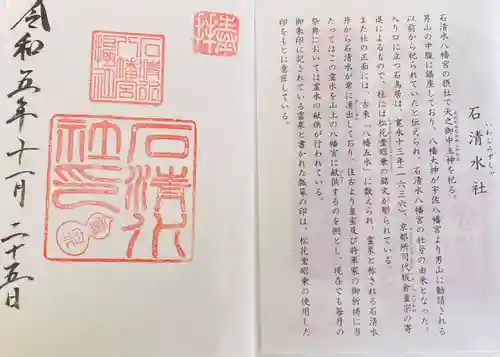 奉拝
石清水八幡宮摂社
石清水社印
霊泉
令和五年十一月二十五日
石清水社
いわしみずしゃ
石清水八幡宮の摂社で天之御中主神を祀る。
男山の中腹に鎮座しており、八幡大神が宇佐八幡宮より男山に勧請される
以前から祀られていたと伝えられ、石清水八幡宮の社号の由来となった。
入り口に立つ石鳥居は、寛永十三年(一六三六)、京都所司代板倉重宗の寄
進によるもので、柱には松花堂昭乗の銘文が彫られている。
また社の正面には、古来「八幡五水」に数えられ、霊泉と称される石清水
井から石清水が常に湧出しており、往古より皇室及び将軍家の御祈祷に当
たってはこの霊水を山上の八幡宮に献供するのを例とし、現在でも毎月の
祭典においては霊水の献供が行われている。
御朱印に記されている霊泉と書かれた瓢箪の印は、松花堂昭乗の使用した
印をもとに意匠している。